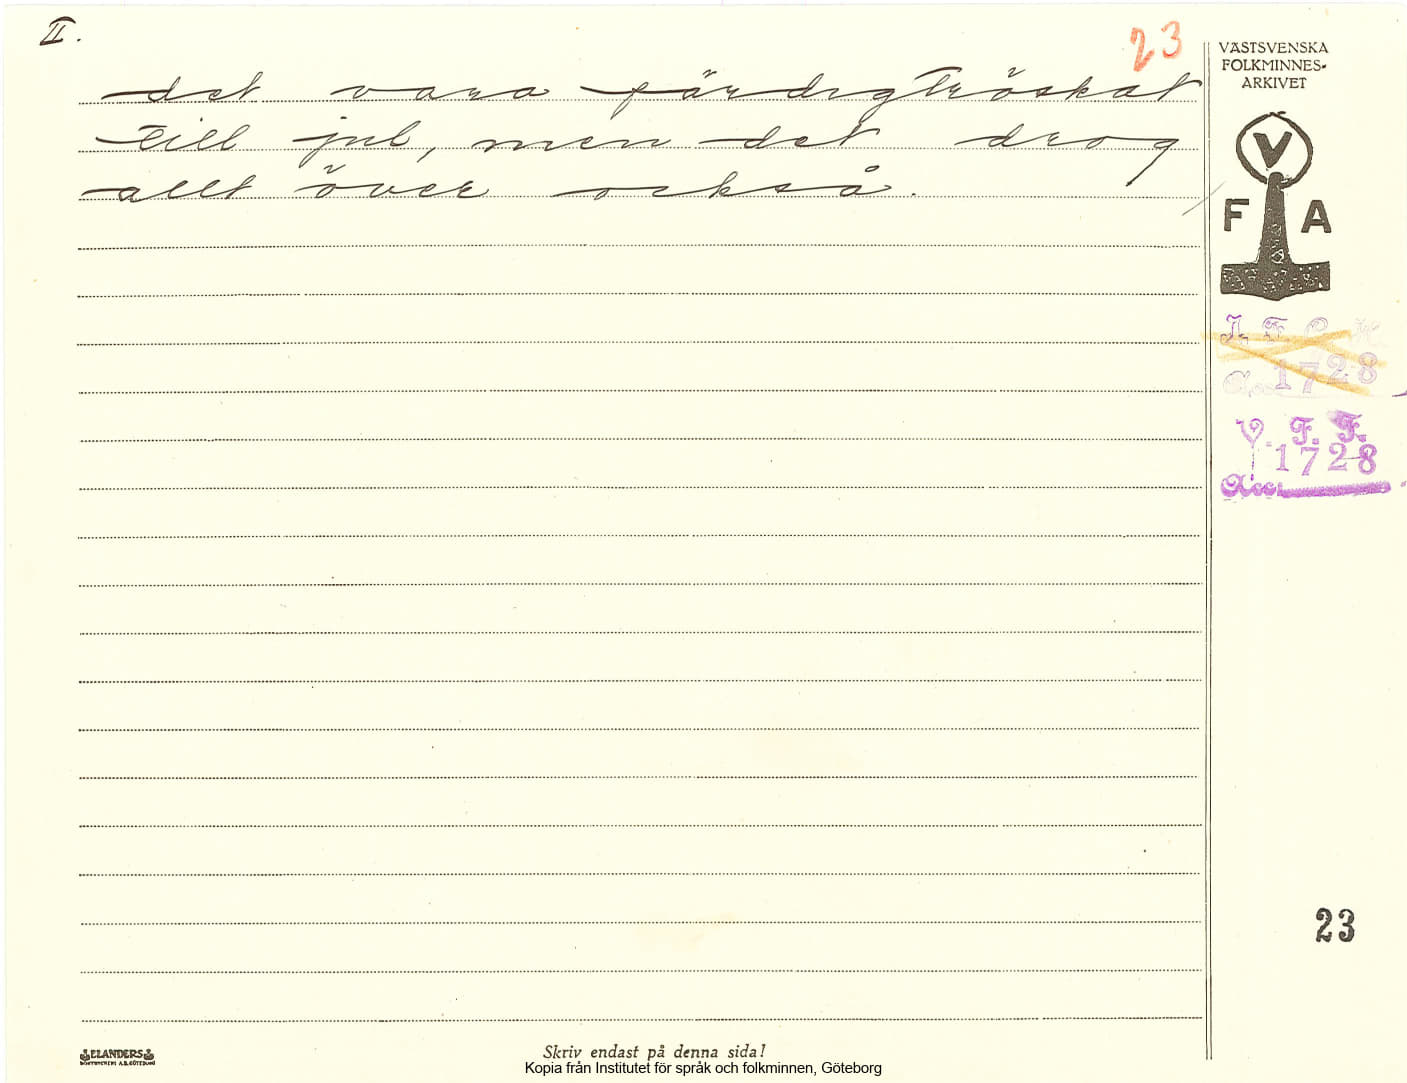 II.
23
det vara färdigtröskat
till jul, men det drog
allt över också.
VÄSTSVENSKA
FOLKMINNES-
ARKIVET
V
F A
I. F. G. H.
Acc. 1728
V. F. F.
1728
Acc.
23
ELANDERS
BOKTRYCKERI A.B. GÖTEBORG
Skriv endast på denna sida!
Kopia från Institutet för språk och folkminnen, Göteborg